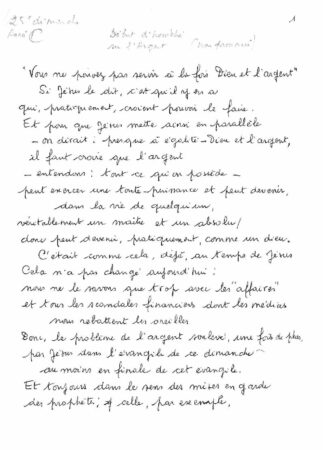 25e dimanche
Année C
1
Début d'homélie
sur l'Argent
(non prononcé)
"Vous ne pouvez pas servir à la fois Dieu et l'argent"
Si Jésus le dit, c'est qu'il y en a
qui, pratiquement, croient pouvoir le faire.
Et pour que Jésus mette ainsi en parallèle
- on dirait : presque à égalité - Dieu et l'argent,
il faut croire que l'argent
- entendons : tout ce qu'on possède -
peut exercer une toute-puissance et peut devenir,
dans la vie de quelqu'un,
véritablement un maître et un absolu/
donc peut devenir, pratiquement, comme un dieu.
C'était comme cela, déjà, au temps de Jésus
Cela n'a pas changé aujourd'hui :
nous ne le savons que trop avec les "affaires"
et tous les scandales financiers dont les médias
nous rebattent les oreilles.
Donc, le problème de l'argent soulevé, une fois de plus,
par Jésus dans l'évangile de ce dimanche
au moins en finale de cet évangile.
Et toujours dans le sens des mises en garde
des prophètes ; celle, par exemple,